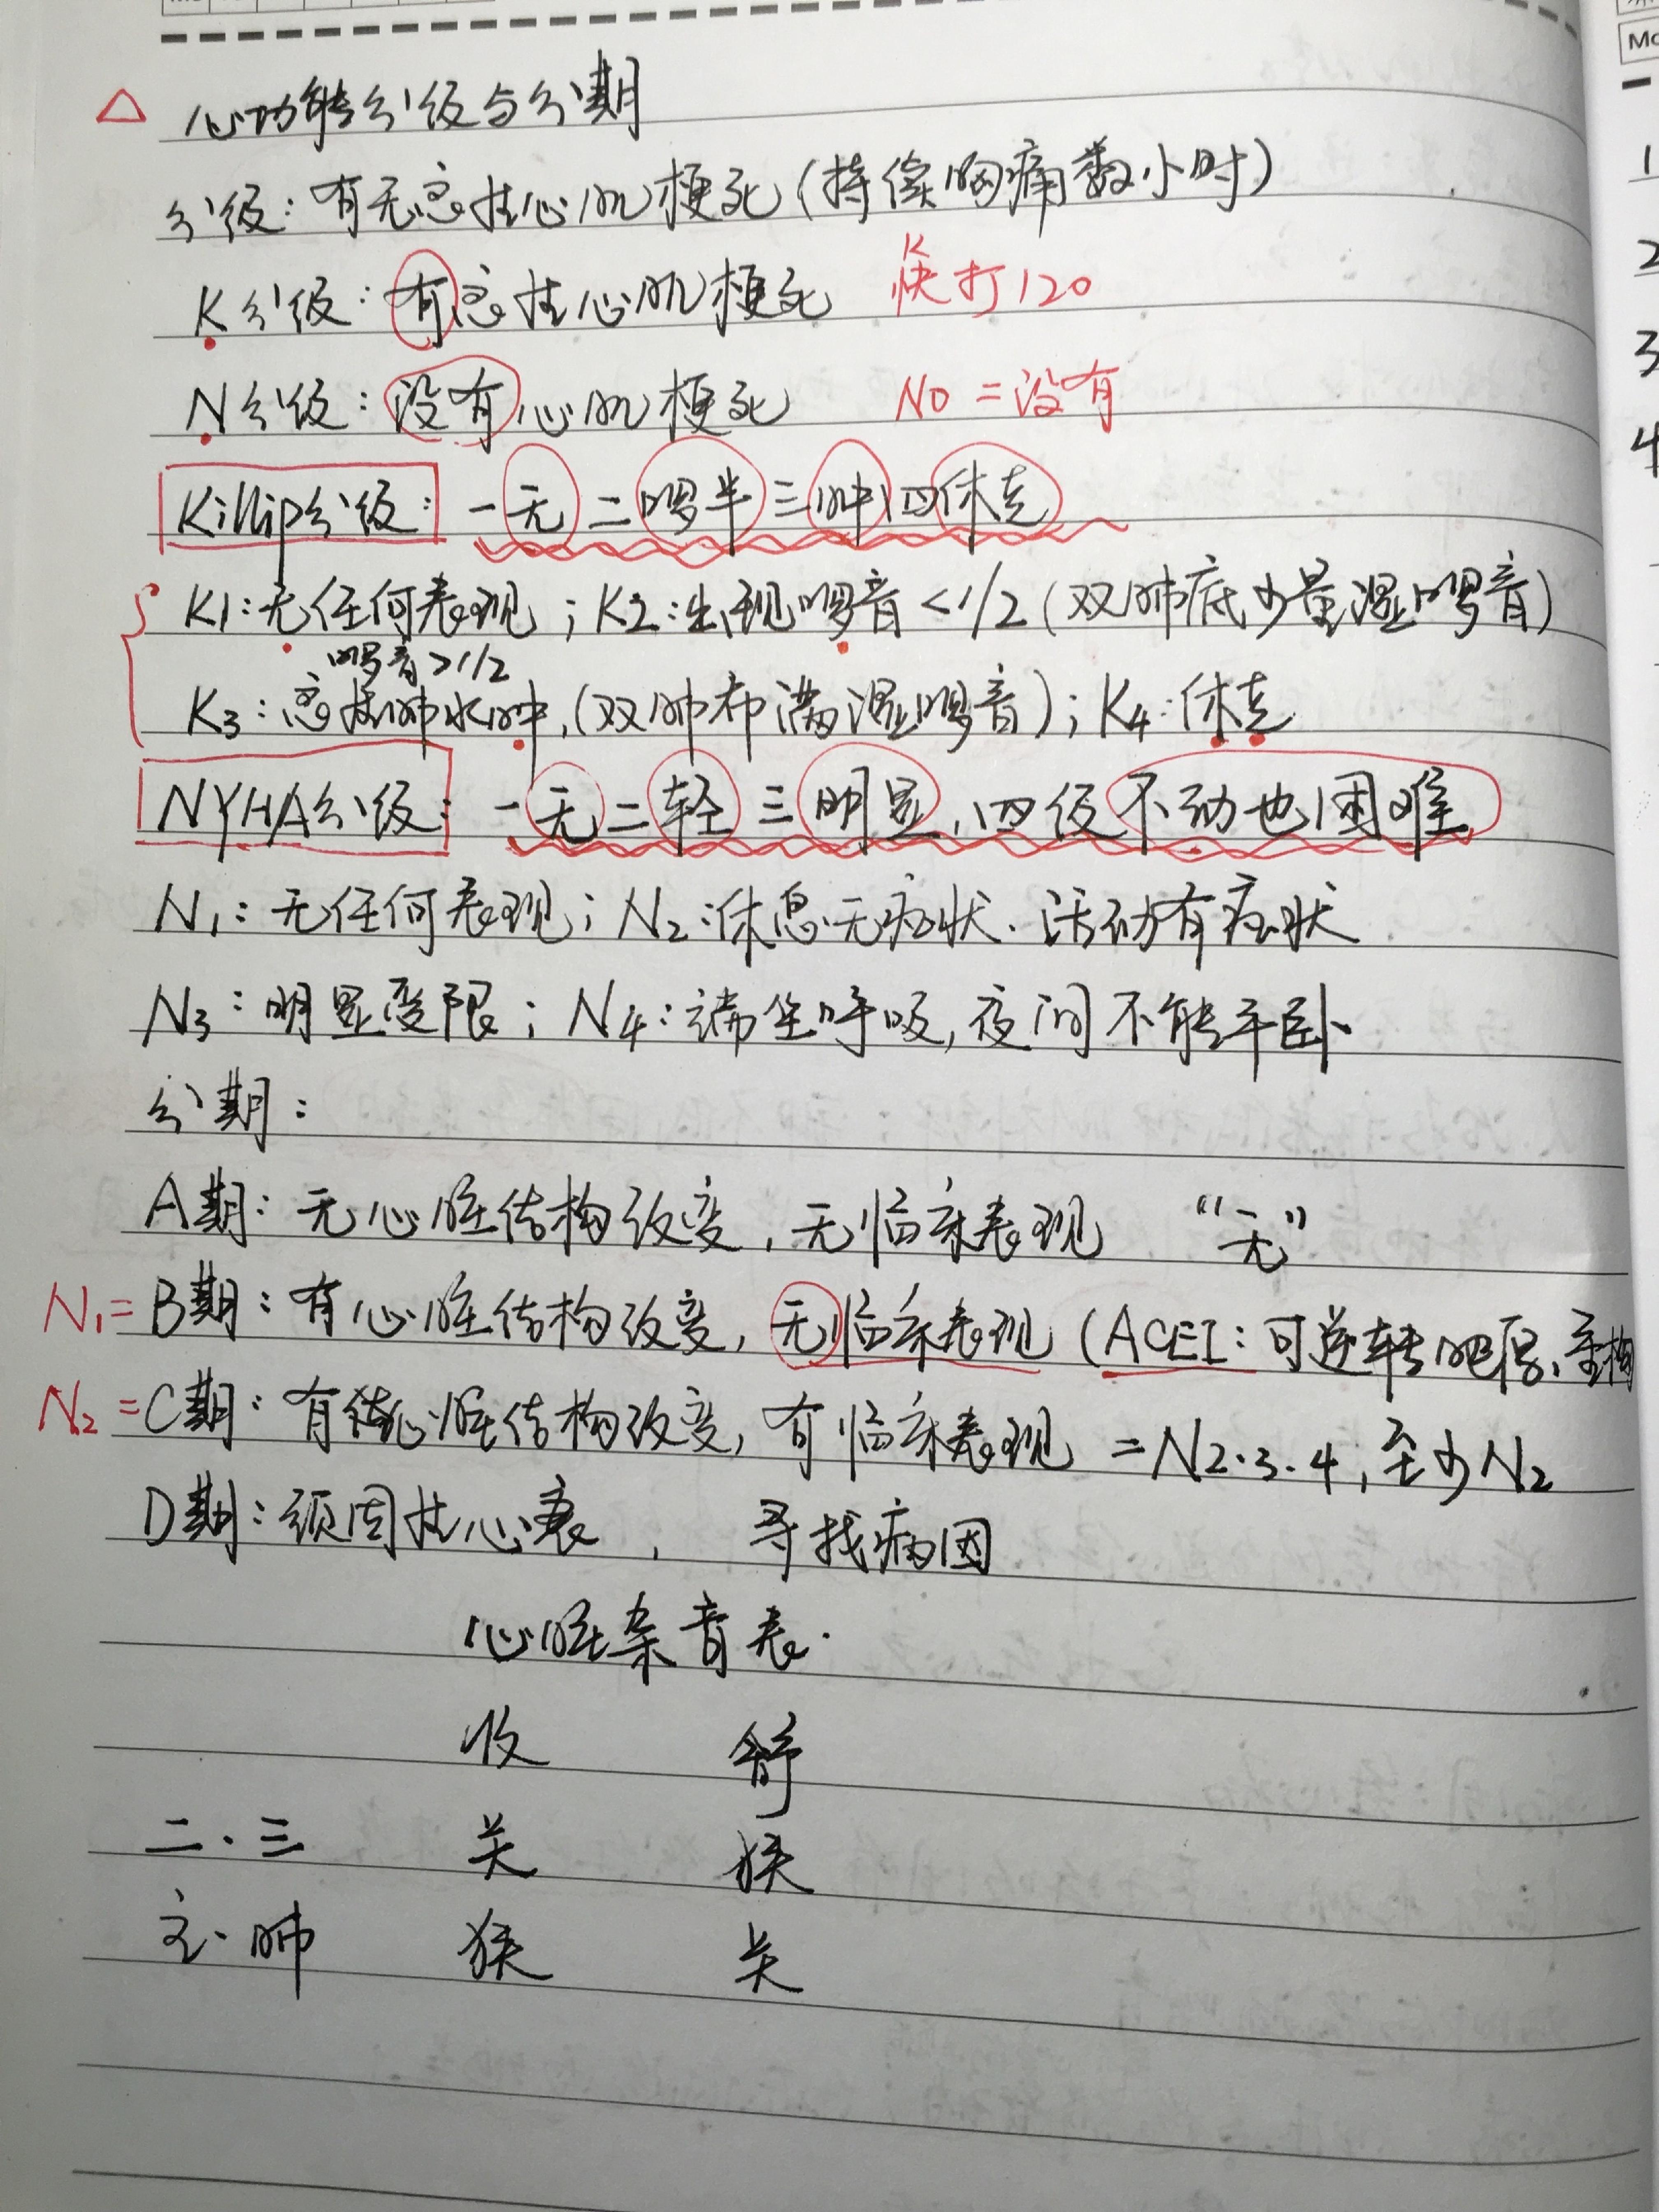 △ 心功能分级与分期
分级：有无急性心肌梗死（持续胸痛数小时）
K分级：有急性心肌梗死 K 快打120
N分级：没有心肌梗死 NO = 没有
Killip分级：一无二啰半三肿四休克
K1：无任何表现；K2：出现啰音<1/2（双肺底少量湿啰音）
啰音>1/2
K3：急性肺水肿，（双肺布满湿啰音）；K4：休克
NYHA分级：一无二轻三明显，四级不动也困难
N1：无任何表现；N2：休息无症状．活动有症状
N3：明显受限；N4：端坐呼吸，夜间不能平卧
分期：
A期：无心脏结构改变，无临床表现 “无”
N1=B期：有心脏结构改变，无临床表现（ACEI：可逆转肥厚、重构
N2=C期：有心脏结构改变，有临床表现 =N2.3.4，至少N2
D期：顽固性心衰，寻找病因
心脏杂音表．
收 舒
二．三 关 狭
主．肺 狭 关
Mo
1
2
3
4